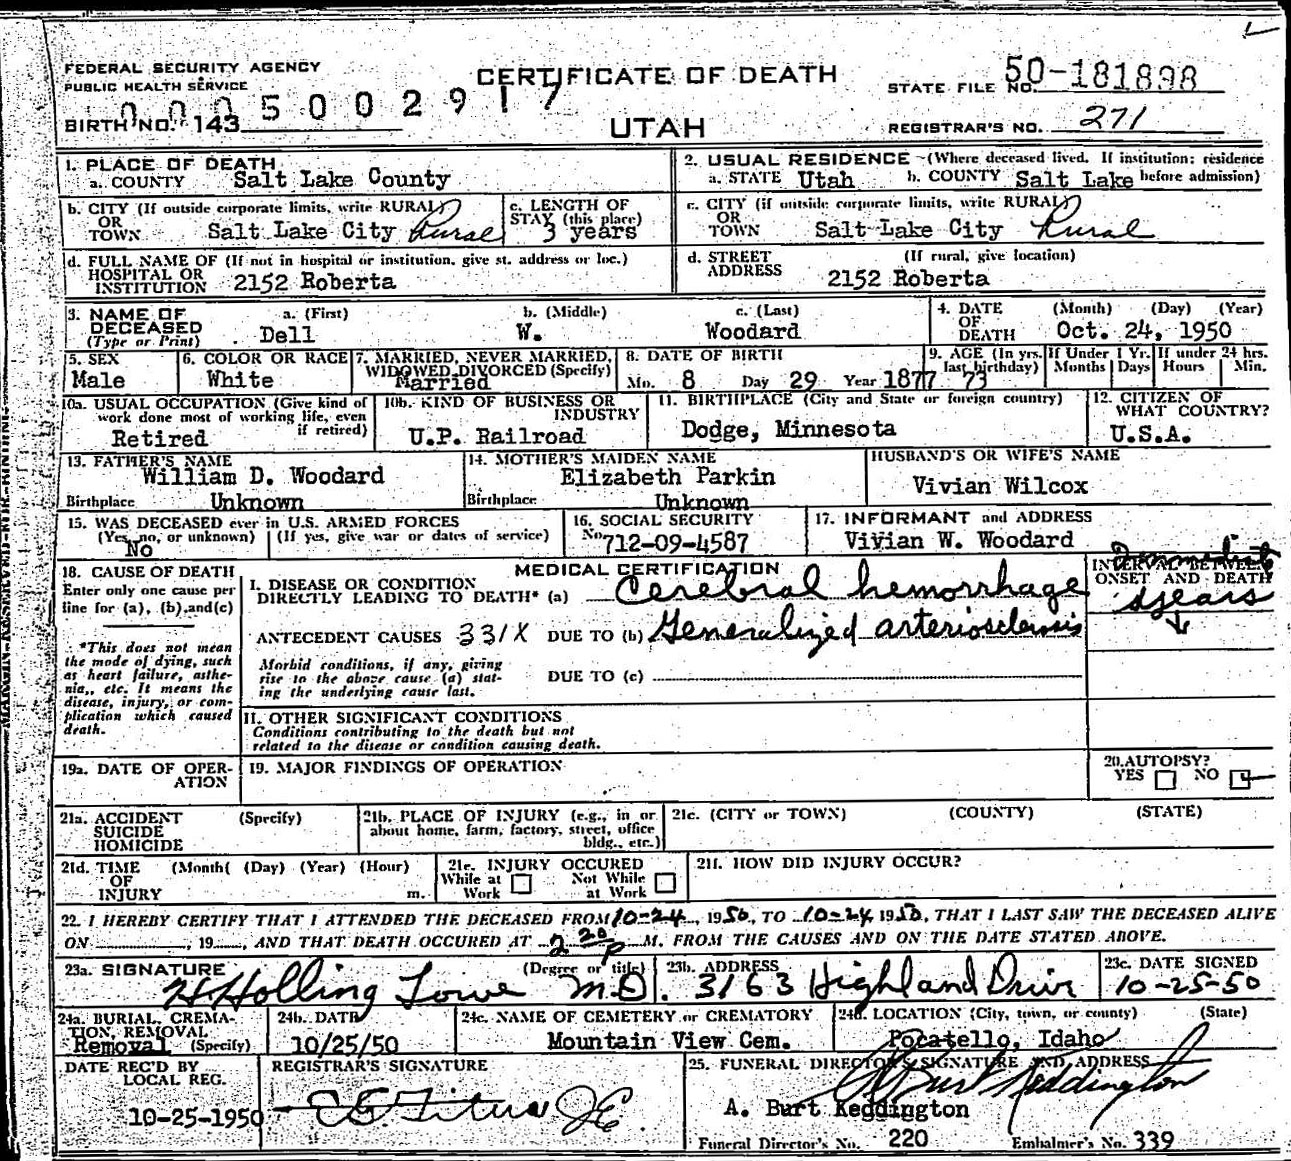 FEDERAL SECURITY AGENCY
PUBLIC HEALTH SERVICE
CERTIFICATE OF DEATH
STATE FILE NO. 50-181898
BIRTH NO. 143
0005002917
UTAH
REGISTRAR'S NO. 271
1. PLACE OF DEATH
a. COUNTY Salt Lake County
2. USUAL RESIDENCE (Where deceased lived. If institution: residence before admission)
a. STATE Utah b. COUNTY Salt Lake
b. CITY (If outside corporate limits, write RURAL)
OR TOWN Salt Lake City Rural
c. LENGTH OF STAY (this place)
3 years
c. CITY (if outside corporate limits, write RURAL)
OR TOWN Salt Lake City Rural
d. FULL NAME OF (If not in hospital or institution, give st. address or loc.)
HOSPITAL OR INSTITUTION 2152 Roberta
d. STREET ADDRESS (If rural, give location)
2152 Roberta
3. NAME OF DECEASED
(Type or Print)
a. (First) b. (Middle) c. (Last)
Dell W. Woodard
4. DATE OF DEATH (Month) (Day) (Year)
Oct. 24, 1950
5. SEX
Male
6. COLOR OR RACE
White
7. MARRIED, NEVER MARRIED, WIDOWED, DIVORCED (Specify)
Married
8. DATE OF BIRTH
Mo. 8 Day 29 Year 1877
9. AGE (In yrs. last birthday)
73
If Under 1 Yr. Months Days
If under 24 hrs. Hours Min.
10a. USUAL OCCUPATION (Give kind of work done most of working life, even if retired)
Retired
10b. KIND OF BUSINESS OR INDUSTRY
U.P. Railroad
11. BIRTHPLACE (City and State or foreign country)
Dodge, Minnesota
12. CITIZEN OF WHAT COUNTRY?
U.S.A.
13. FATHER'S NAME
William D. Woodard
Birthplace Unknown
14. MOTHER'S MAIDEN NAME
Elizabeth Parkin
Birthplace Unknown
HUSBAND'S OR WIFE'S NAME
Vivian Wilcox
15. WAS DECEASED ever in U.S. ARMED FORCES
(Yes, no, or unknown) (If yes, give war or dates of service)
No
16. SOCIAL SECURITY
No. 712-09-4587
17. INFORMANT and ADDRESS
Vivian W. Woodard
18. CAUSE OF DEATH
Enter only one cause per line for (a), (b), and (c)
*This does not mean the mode of dying, such as heart failure, asthenia, etc. It means the disease, injury, or complication which caused death.
MEDICAL CERTIFICATION
I. DISEASE OR CONDITION
DIRECTLY LEADING TO DEATH* (a) Cerebral hemorrhage
INTERVAL BETWEEN ONSET AND DEATH
Immediate
years
ANTECEDENT CAUSES 331X DUE TO (b) Generalized arteriosclerosis
Morbid conditions, if any, giving rise to the above cause (a) stating the underlying cause last.
DUE TO (c)
II. OTHER SIGNIFICANT CONDITIONS
Conditions contributing to the death but not related to the disease or condition causing death.
19a. DATE OF OPERATION
19. MAJOR FINDINGS OF OPERATION
20. AUTOPSY?
YES NO
21a. ACCIDENT SUICIDE HOMICIDE (Specify)
21b. PLACE OF INJURY (e.g., in or about home, farm, factory, street, office bldg., etc.)
21c. (CITY or TOWN) (COUNTY) (STATE)
21d. TIME OF INJURY (Month) (Day) (Year) (Hour) m.
21e. INJURY OCCURED
While at Work Not While at Work
21f. HOW DID INJURY OCCUR?
22. I HEREBY CERTIFY THAT I ATTENDED THE DECEASED FROM 10-24, 1950, TO 10-24 1950, THAT I LAST SAW THE DECEASED ALIVE
ON , 19 , AND THAT DEATH OCCURED AT 2 20 P M. FROM THE CAUSES AND ON THE DATE STATED ABOVE.
23a. SIGNATURE (Degree or title)
H Holling Lowe M.D.
23b. ADDRESS
3163 Highland Drive
23c. DATE SIGNED
10-25-50
24a. BURIAL, CREMATION, REMOVAL (Specify)
Removal
24b. DATE
10/25/50
24c. NAME OF CEMETERY or CREMATORY
Mountain View Cem.
24d. LOCATION (City, town, or county) (State)
Pocatello, Idaho
DATE REC'D BY LOCAL REG.
10-25-1950
REGISTRAR'S SIGNATURE
25. FUNERAL DIRECTOR'S SIGNATURE AND ADDRESS
A Burt Keddington
A. Burt Keddington
Funeral Director's No. 220 Embalmer's No. 339